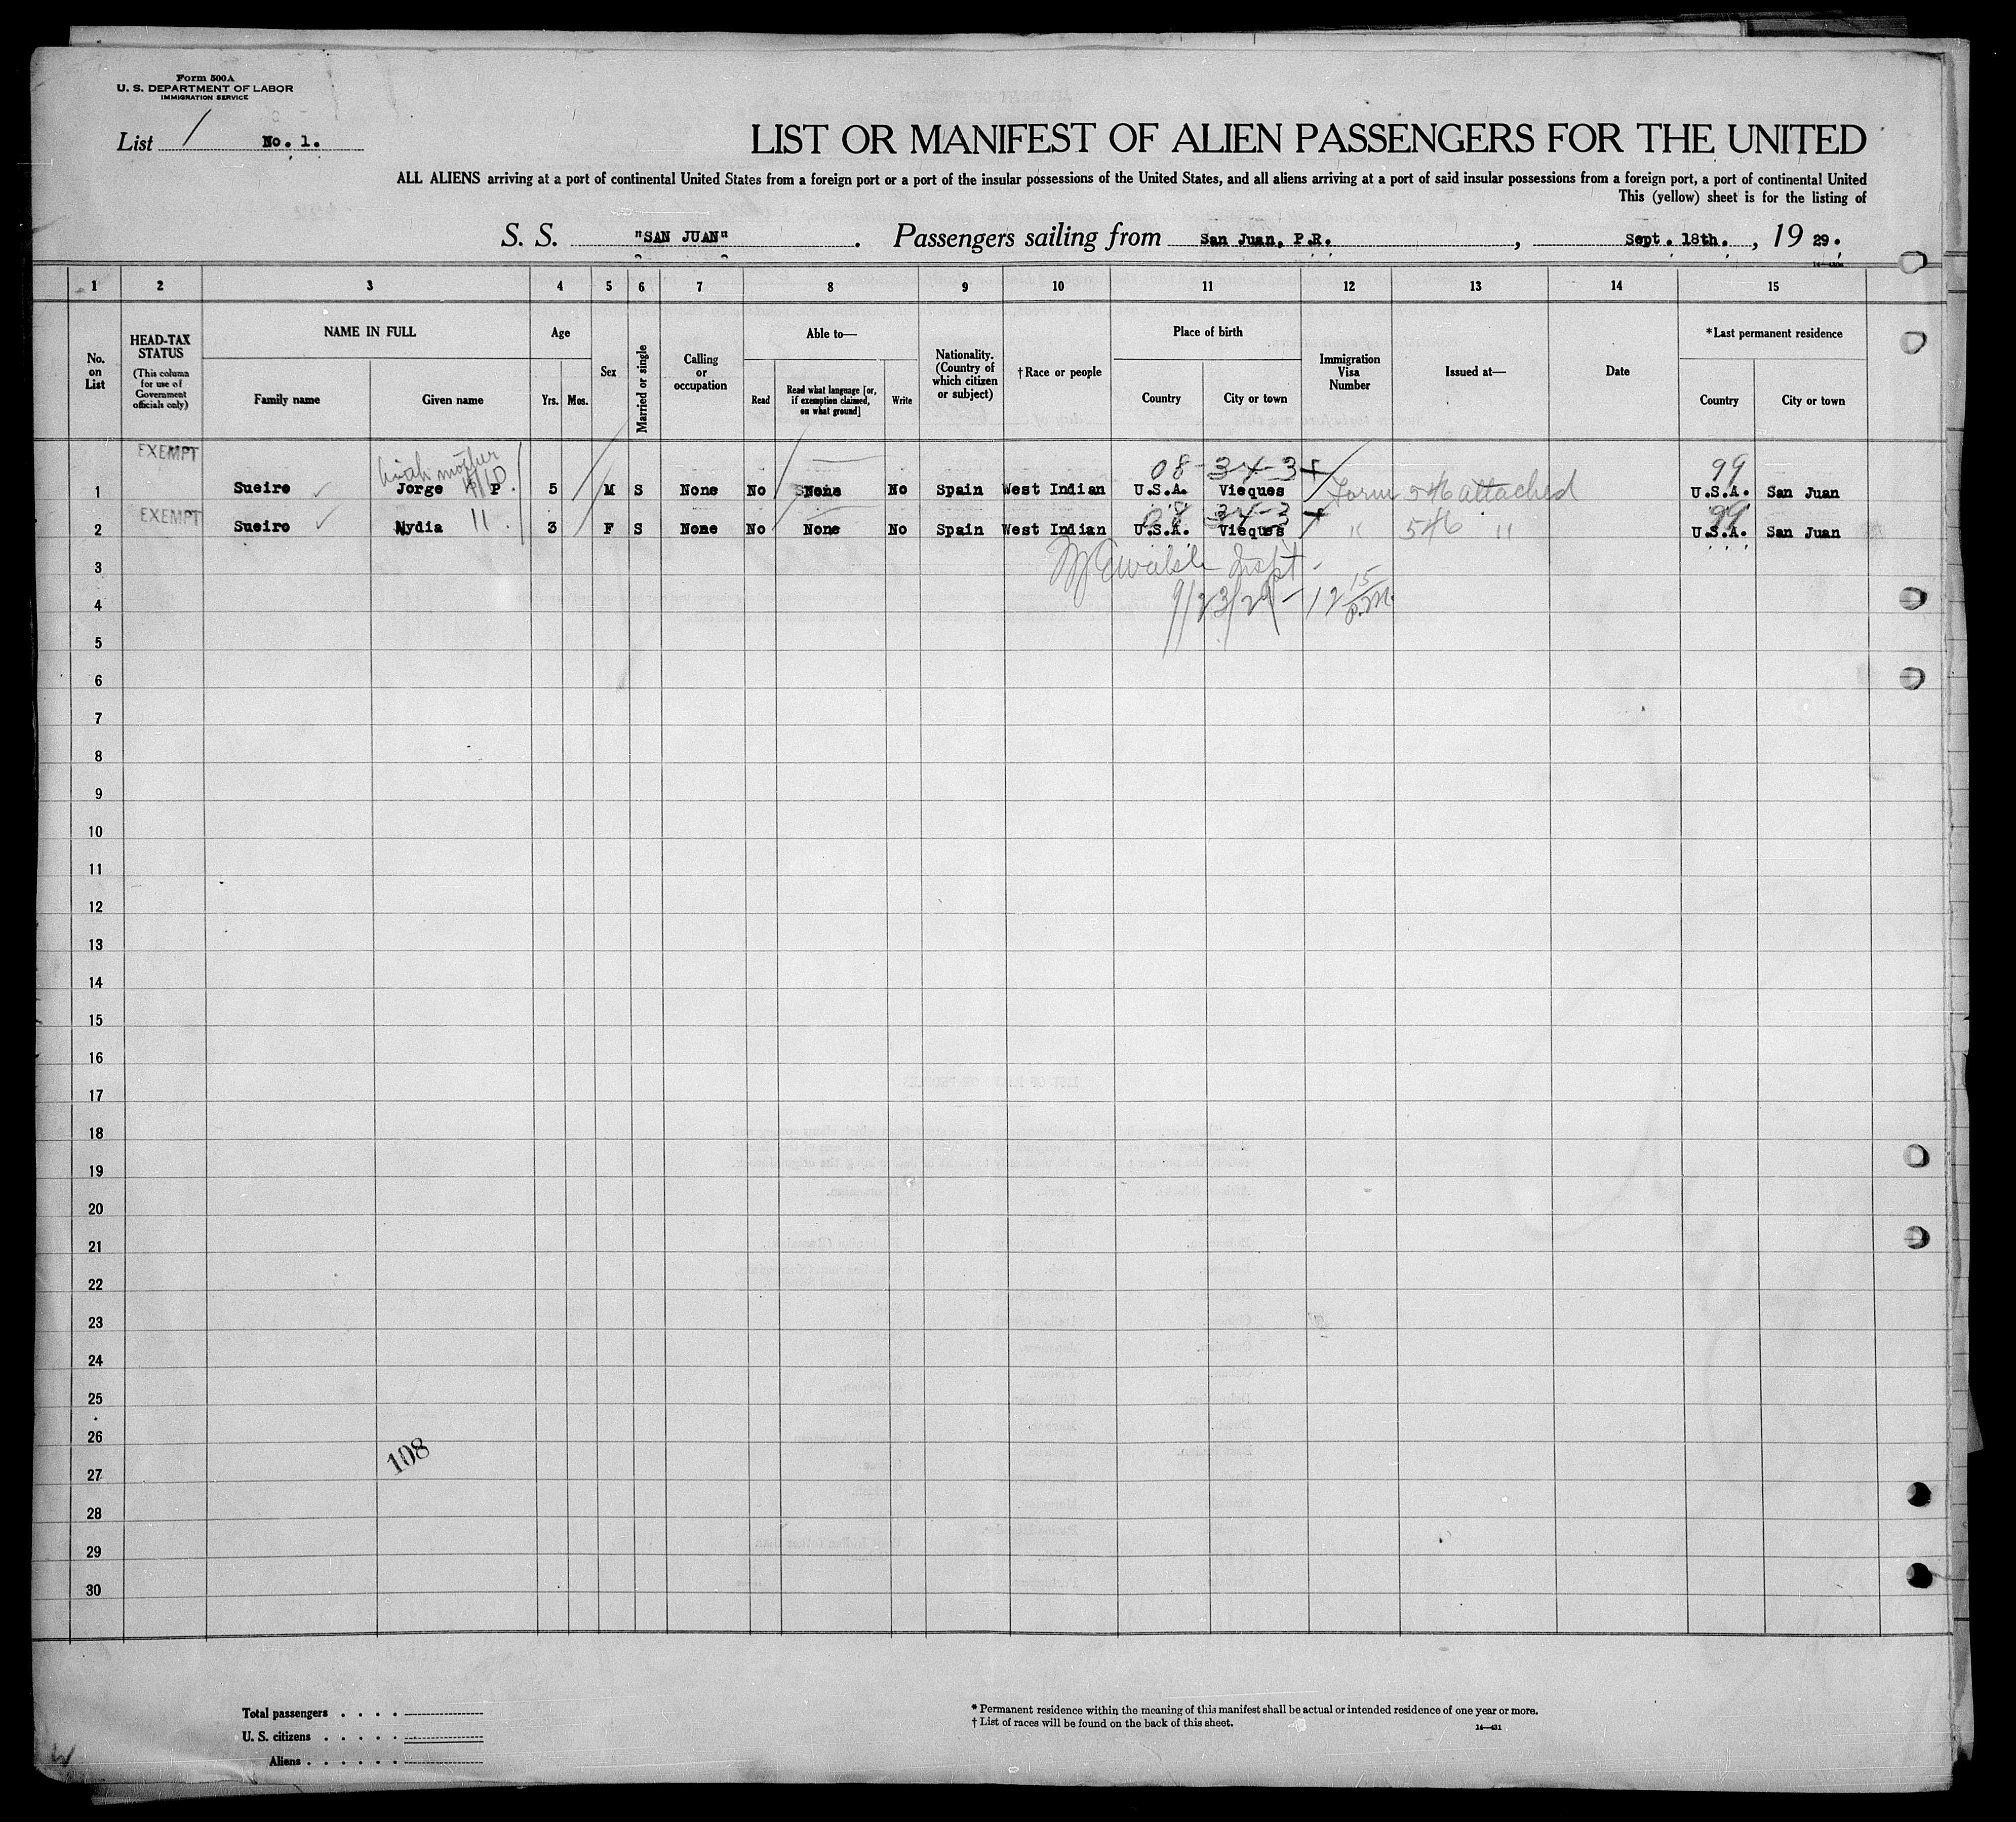 Form 500A
U. S. DEPARTMENT OF LABOR
IMMIGRATION SERVICE
List / No. 1.
LIST OR MANIFEST OF ALIEN PASSENGERS FOR THE UNITED
ALL ALIENS arriving at a port of continental United States from a foreign port or a port of the insular possessions of the United States, and all aliens arriving at a port of said insular possessions from a foreign port, a port of continental United
This (yellow) sheet is for the listing of
S. S. "SAN JUAN". Passengers sailing from San Juan, P.R., Sept. 18th., 19 29.
1 2 3 4 5 6 7 8 9 10 11 12 13 14 15
No. on List
HEAD-TAX STATUS (This column for use of Government officials only)
NAME IN FULL
Family name Given name
Age
Yrs. Mos.
Sex
Married or single
Calling or occupation
Able to—
Read Read what language [or, if exemption claimed, on what ground] Write
Nationality. (Country of which citizen or subject)
†Race or people
Place of birth
Country City or town
Immigration Visa Number
Issued at—
Date
*Last permanent residence
Country City or town
EXEMPT with mother 08-34-3+ 99
1 Sueiro Jorge P 5 M S None No None No Spain West Indian U.S.A. Vieques Form 546 attached U.S.A. San Juan
EXEMPT 08 34-3 + 99
2 Sueiro Nydia 11 3 F S None No None No Spain West Indian U.S.A. Vieques " 546 " U.S.A. San Juan
3 Inspt.
4 9/23/29 - 12 15 P.M.
5
6
7
8
9
10
11
12
13
14
15
16
17
18
19
20
21
22
23
24
25
26
108
27
28
29
30
Total passengers . . . .
U. S. citizens . . . . .
Aliens . . . . . .
* Permanent residence within the meaning of this manifest shall be actual or intended residence of one year or more.
† List of races will be found on the back of this sheet. 14—431
W